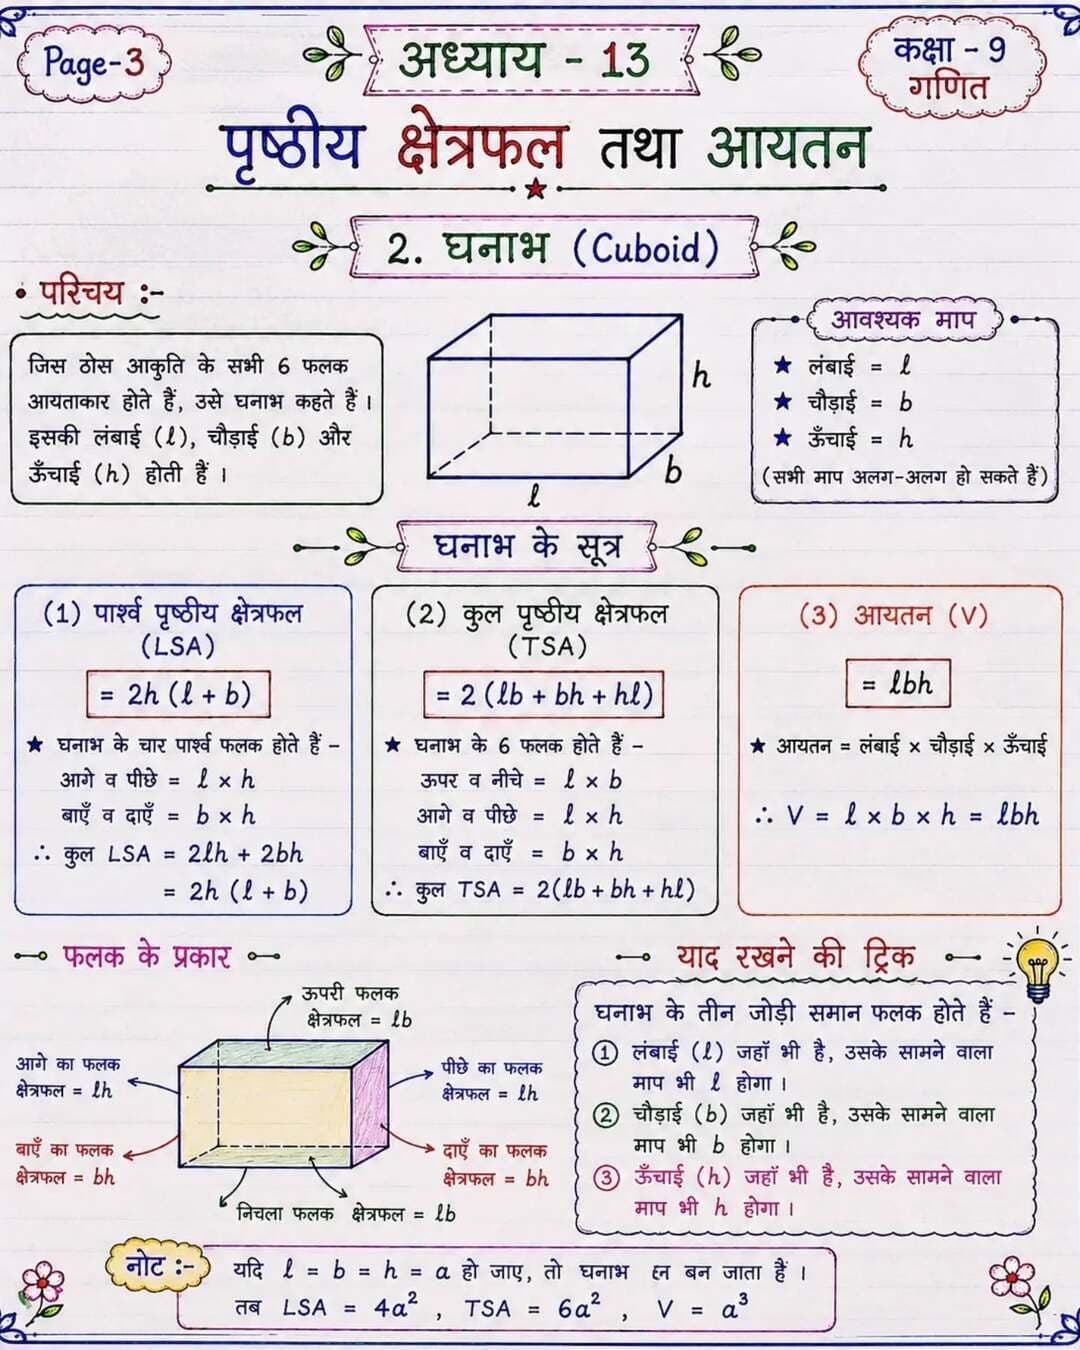 Page-3
अध्याय - 13
कक्षा - 9
गणित
पृष्ठीय क्षेत्रफल तथा आयतन
2. घनाभ (Cuboid)
• परिचय :-
जिस ठोस आकृति के सभी 6 फलक
आयताकार होते हैं, उसे घनाभ कहते हैं।
इसकी लंबाई (l), चौड़ाई (b) और
ऊँचाई (h) होती हैं।
h
b
l
आवश्यक माप
★ लंबाई = l
★ चौड़ाई = b
★ ऊँचाई = h
(सभी माप अलग-अलग हो सकते हैं)
घनाभ के सूत्र
(1) पार्श्व पृष्ठीय क्षेत्रफल
(LSA)
= 2h (l + b)
★ घनाभ के चार पार्श्व फलक होते हैं -
आगे व पीछे = l × h
बाएँ व दाएँ = b × h
∴ कुल LSA = 2lh + 2bh
= 2h (l + b)
(2) कुल पृष्ठीय क्षेत्रफल
(TSA)
= 2 (lb + bh + hl)
★ घनाभ के 6 फलक होते हैं -
ऊपर व नीचे = l × b
आगे व पीछे = l × h
बाएँ व दाएँ = b × h
∴ कुल TSA = 2(lb + bh + hl)
(3) आयतन (V)
= lbh
★ आयतन = लंबाई × चौड़ाई × ऊँचाई
∴ V = l × b × h = lbh
फलक के प्रकार
ऊपरी फलक
क्षेत्रफल = lb
आगे का फलक
क्षेत्रफल = lh
पीछे का फलक
क्षेत्रफल = lh
बाएँ का फलक
क्षेत्रफल = bh
दाएँ का फलक
क्षेत्रफल = bh
निचला फलक क्षेत्रफल = lb
याद रखने की ट्रिक
घनाभ के तीन जोड़ी समान फलक होते हैं -
① लंबाई (l) जहाँ भी है, उसके सामने वाला
माप भी l होगा।
② चौड़ाई (b) जहाँ भी है, उसके सामने वाला
माप भी b होगा।
③ ऊँचाई (h) जहाँ भी है, उसके सामने वाला
माप भी h होगा।
नोट :-
यदि l = b = h = a हो जाए, तो घनाभ बन जाता हैं।
तब LSA = 4a², TSA = 6a², V = a³